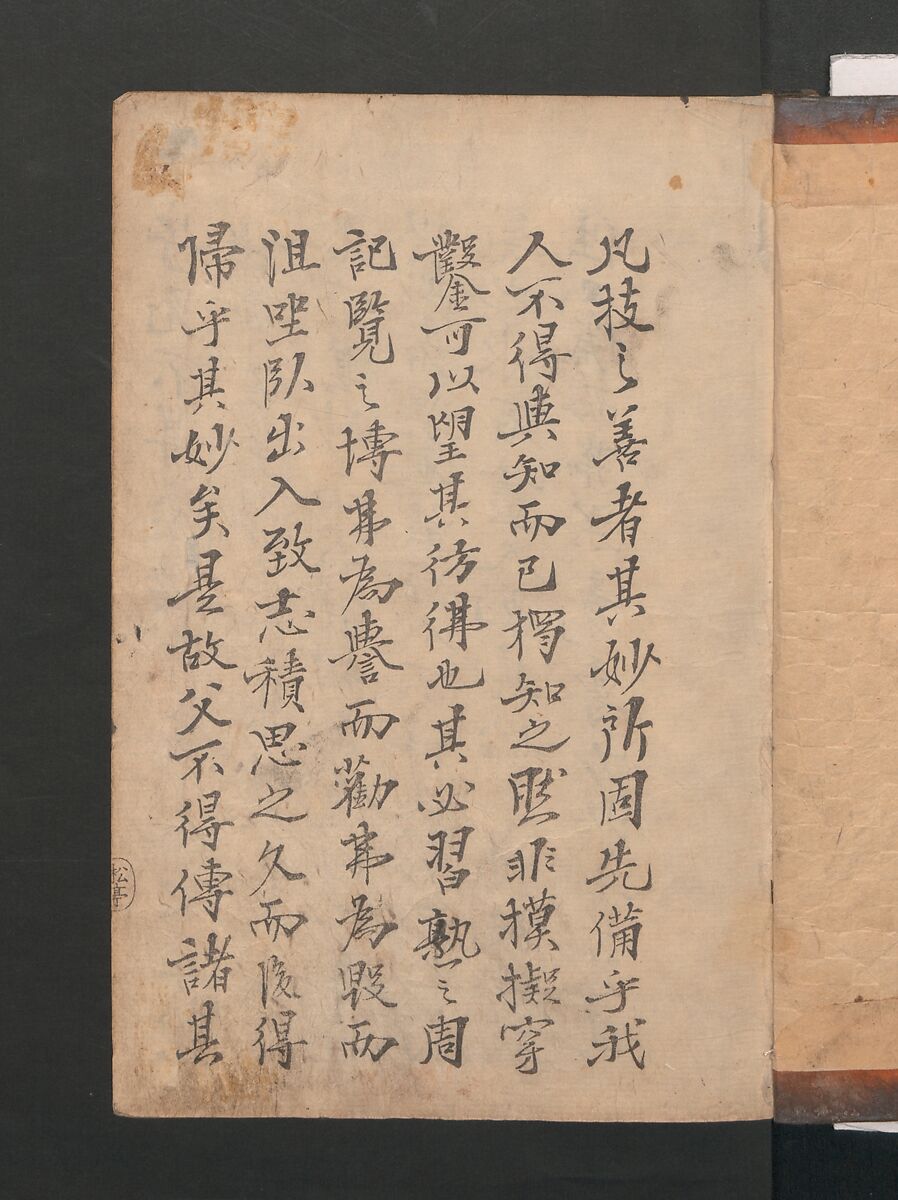 凡技之善者其妙所固先備乎我
人不得與知而已獨知之然非摸擬穿
鑿可以望其彷彿也其必習熟之周
記覽之博弗為譽而勸弗為毀而
沮坐臥出入致志積思之久而後得
帰乎其妙矣是故父不得傳諸其
松亭